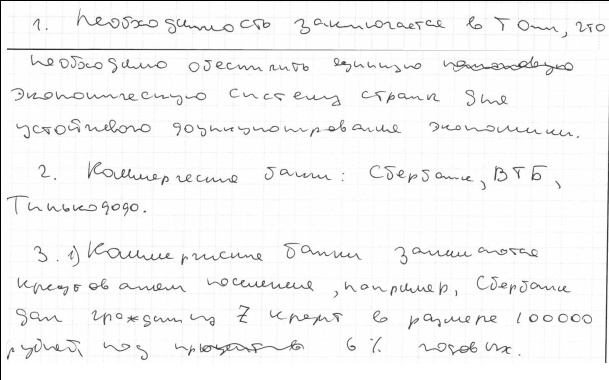 1. Необходимость заключается в том, что
необходимо обеспечить единую
экономическую систему страны для
устойчивого функционирование экономики.
2. Коммерческие банки: Сбербанк, ВТБ,
Тинькофф.
3. 1) Коммерческие банки занимаются
кредитованием население, например, Сбербанк
дал гражданину Z кредит в размере 100000
рублей под 6% годовых.